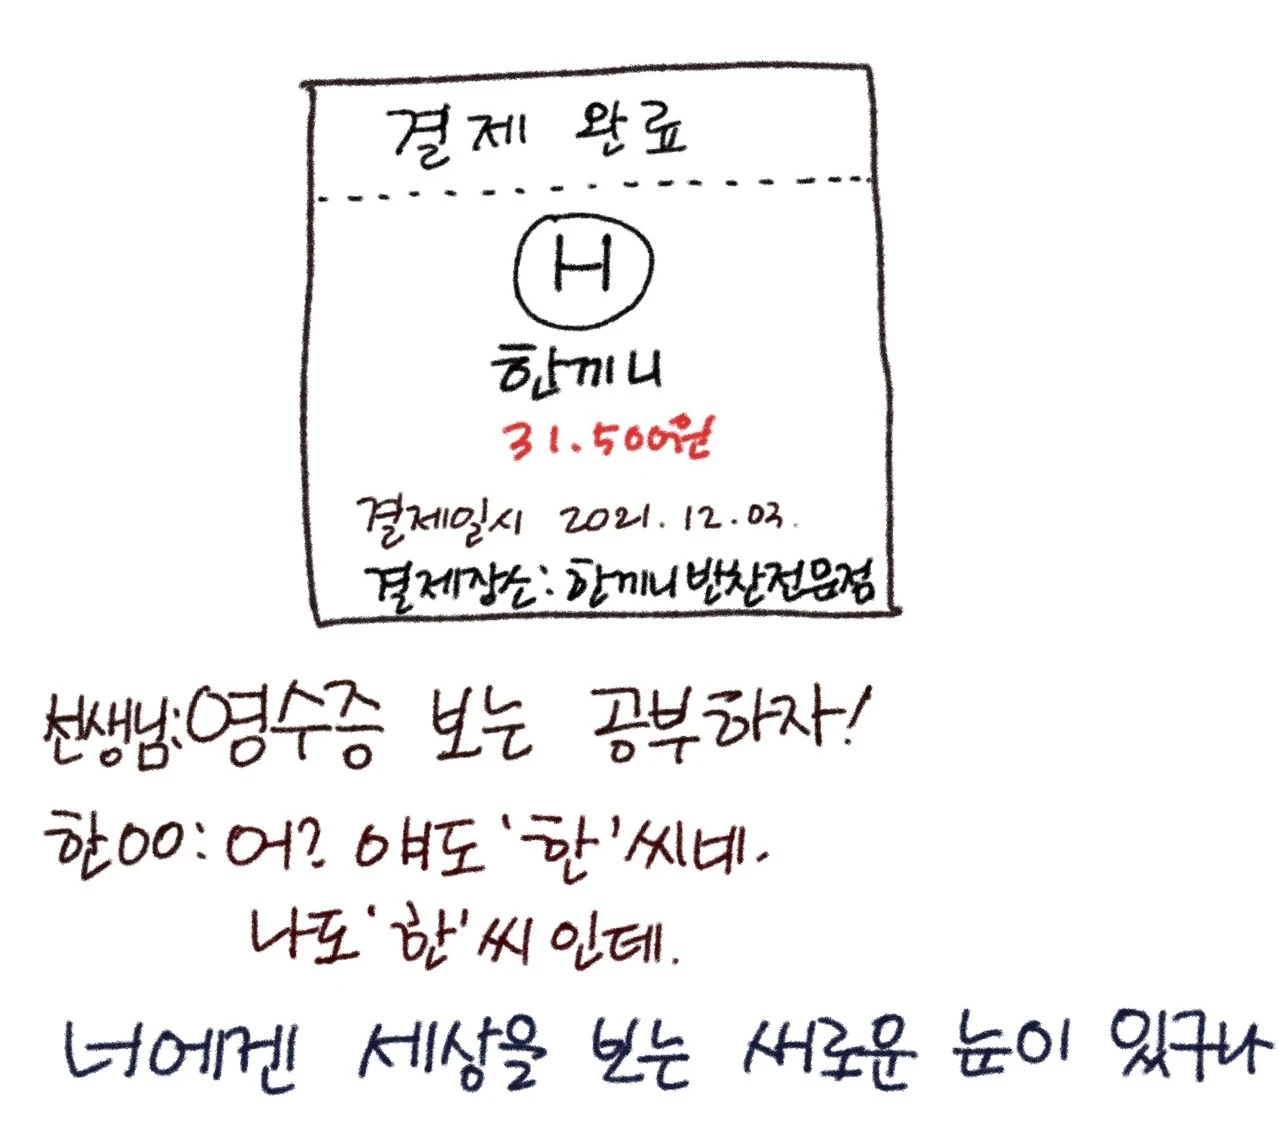 결제 완료
H
한끼니
31.500원
결제일시 2021.12.03.
결제장소: 한끼니반찬전문점
선생님: 영수증 보는 공부하자!
한OO: 어? 얘도 '한'씨네.
나도 '한'씨인데.
너에겐 세상을 보는 새로운 눈이 있구나